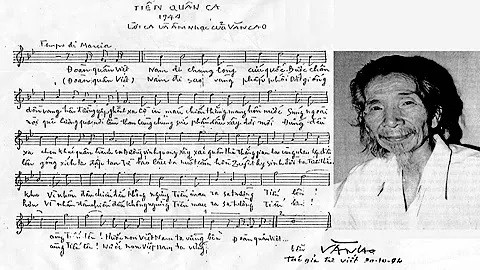 TIẾN QUÂN CA
1944
LỜI CA VÀ ÂM NHẠC CỦA VĂN CAO
Tempo di Marcia
Đoàn quân Việt Nam đi chung lòng cứu quốc Bước chân
(Đoàn quân Việt) Nam đi sao vàng phấp phới Dắt giống
dồn vang trên đường gập ghềnh xa Cờ in máu chiến thắng mang hồn nước Súng ngoài
nòi quê hương qua nơi lầm than Cùng chung sức phấn đấu xây đời mới Đứng đều
xa chen khúc quân hành ca Đường vinh quang xây xác quân thù Thắng gian lao cùng nhau lập chiến
lên gông xích ta đập tan Từ bao lâu ta nuốt căm hờn Quyết hy sinh đời ta
khu Vì nhân dân chiến đấu không ngừng Tiến mau ra sa trường Tiến lên!
Vì nhân dân chiến đấu không ngừng Tiến mau ra sa trường Tiến lên!
cùng tiến lên! Nước non Việt Nam ta vững bền Đoàn quân Việt
cùng tiến lên! Nước non Việt Nam ta vững
bền VĂN CAO
Tác giả tự viết